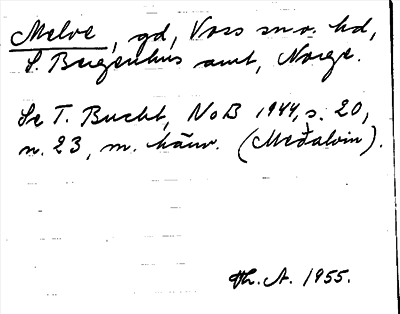 Melve, gd, Voss sn o. hd,
S. Bergenhus amt, Norge.
Se T. Bucht, NoB 1944, s. 20,
n. 23, m. hänv. (Meðalvin).
Th. A. 1955.